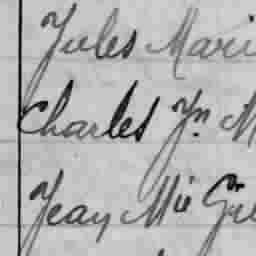 Jules Mari
Charles Jn. M
Jean Mie Gre